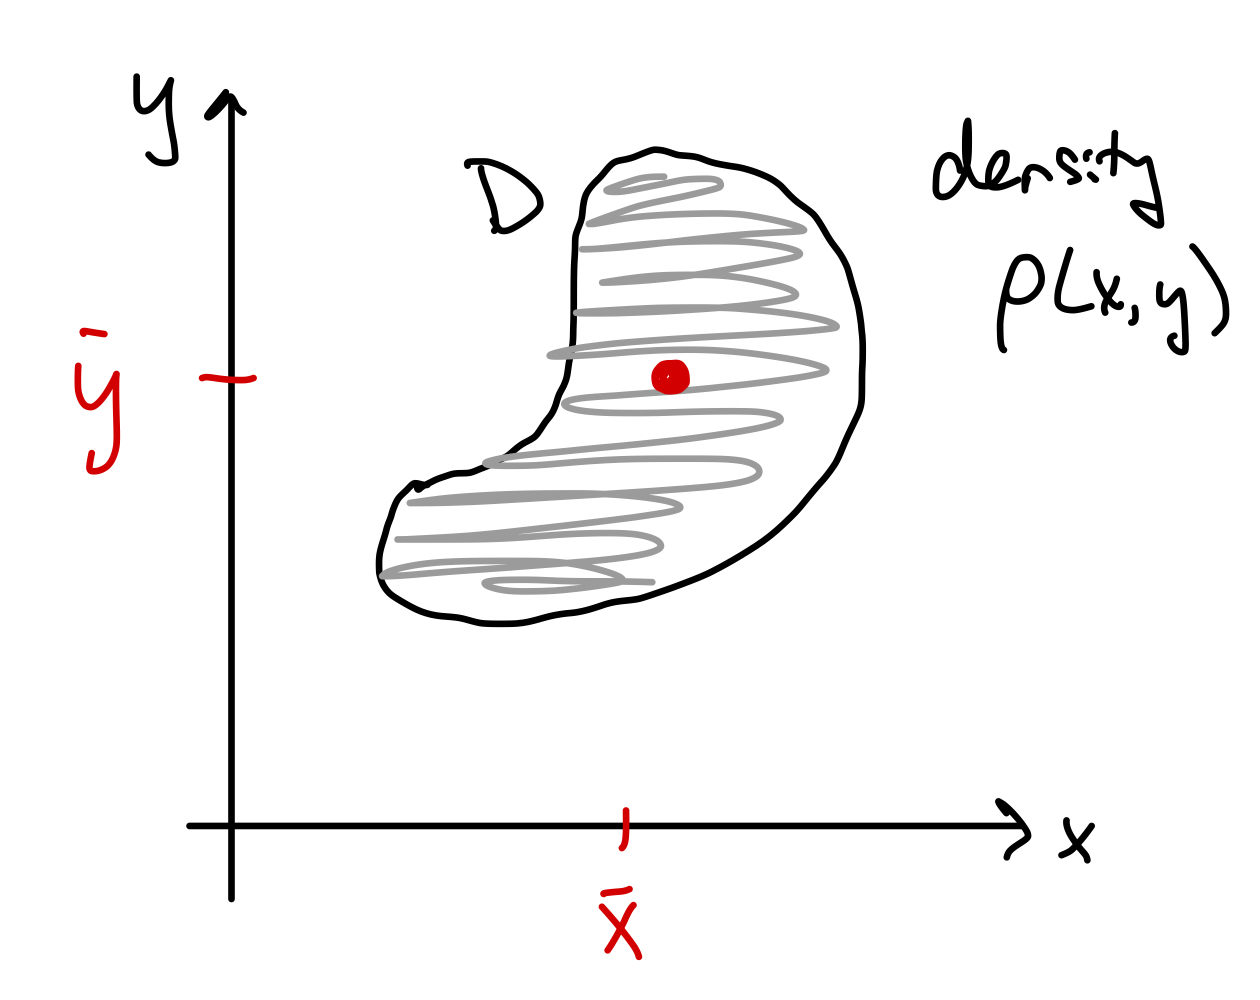 y
D
density
ρ(x, y)
ȳ
x
x̄